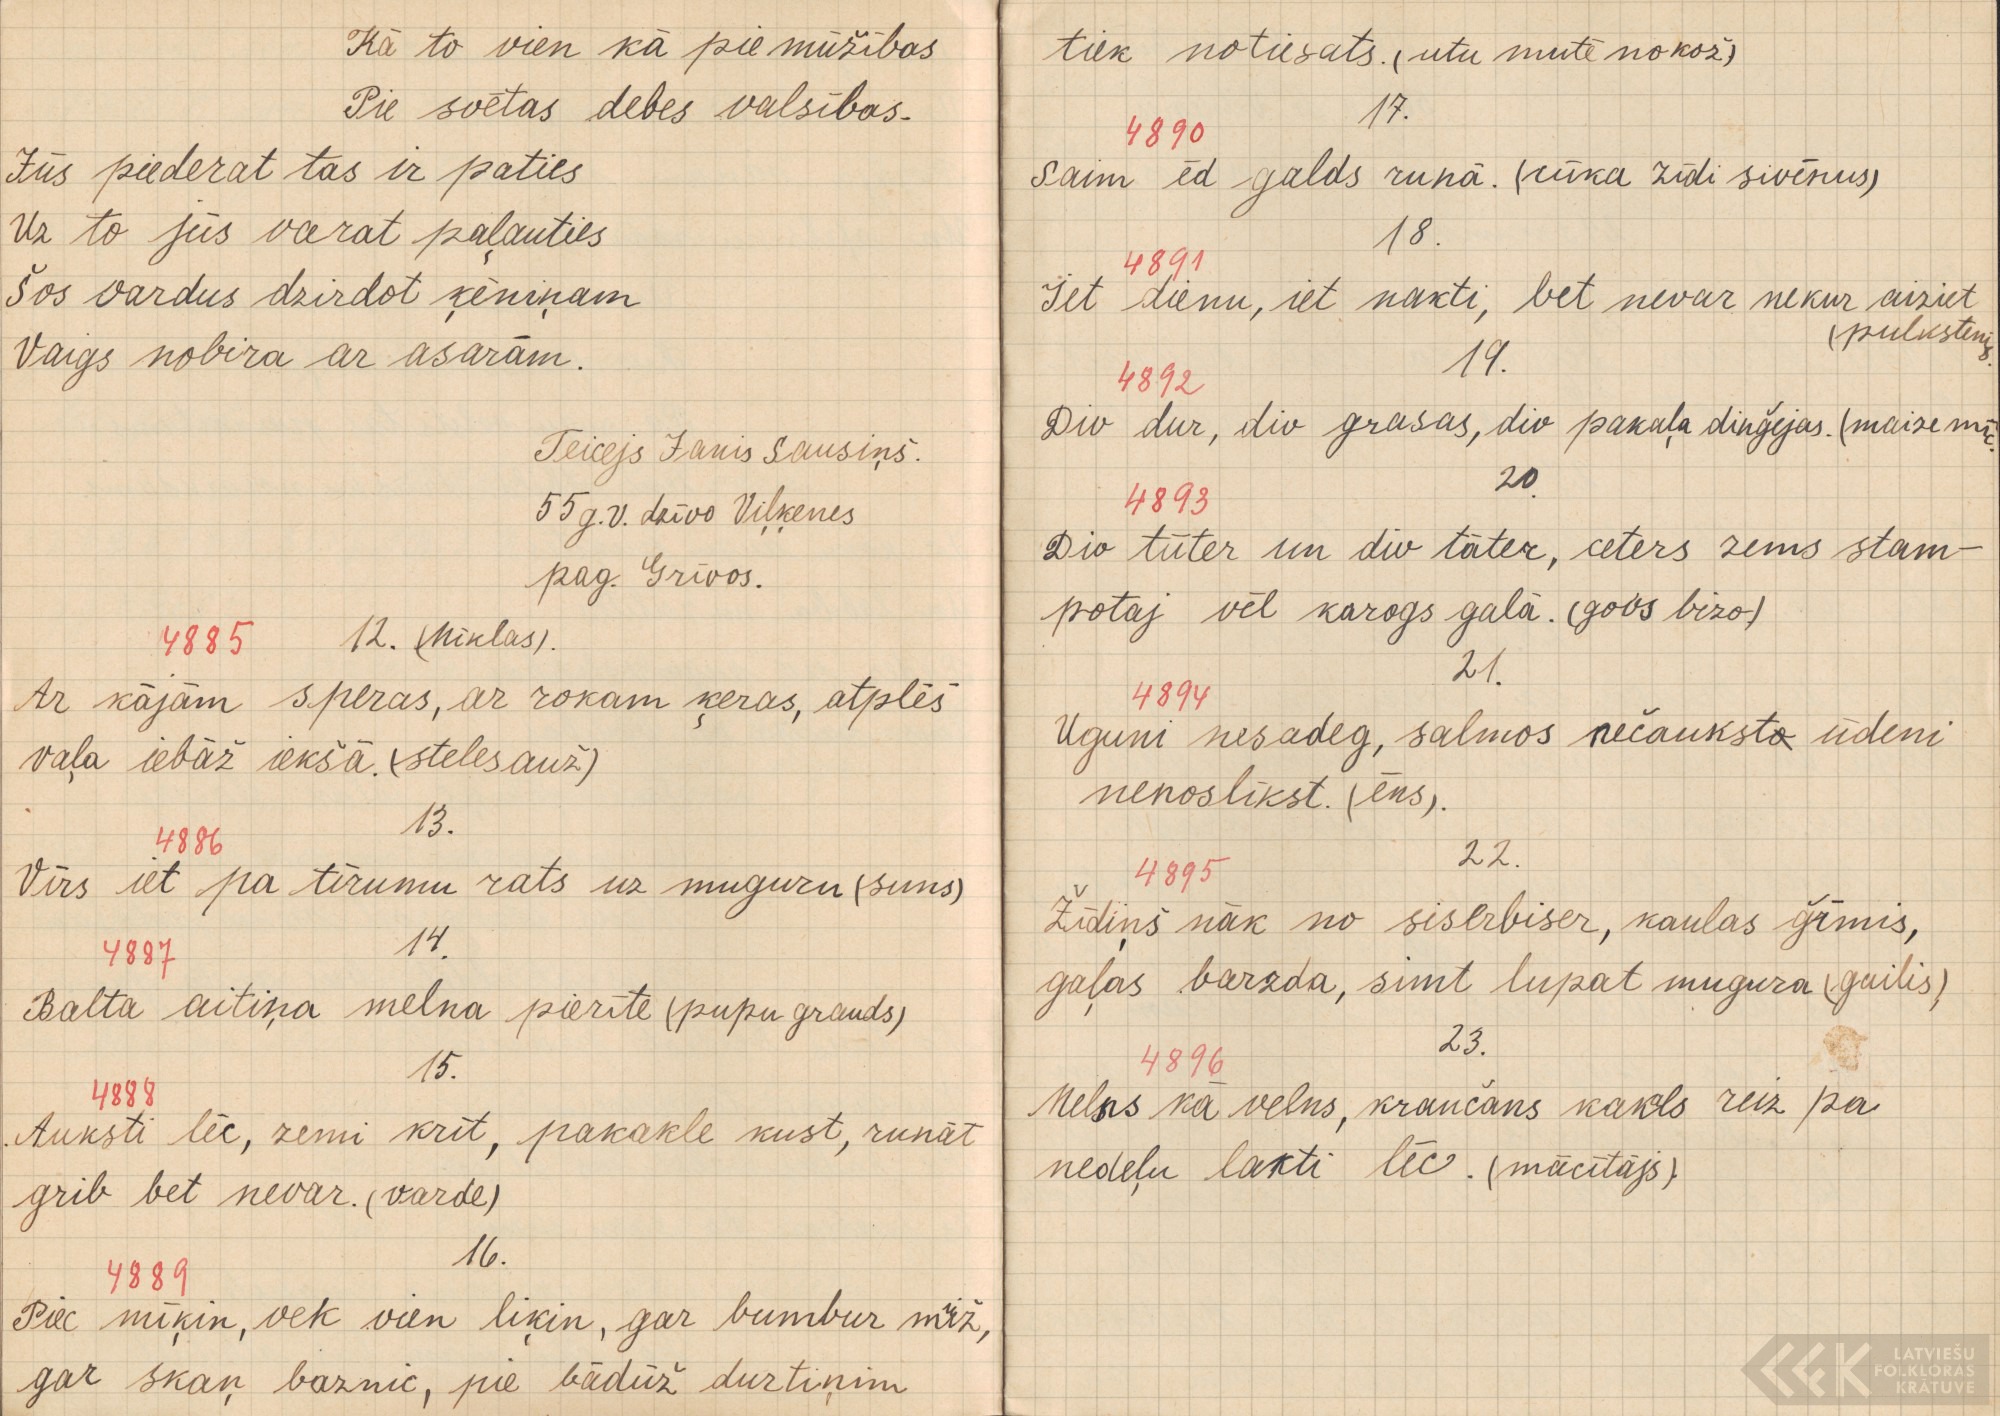 Kā to vien kā pie mūžības
Pie svētas debes valsības.
Jūs piederat tas ir paties
Uz to jūs varat paļauties
Šos vardus dzirdot ķēniņam
Vaigs nobira ar asarām.
Teicejs Janis Sausiņš.
55 g.v. dzīvo Viļķenes
pag. Grīvos.
4885 12. (Mīklas).
Ar kājām speras, ar rokam ķeras, atplēš
vaļa iebāž iekšā. (steles auž)
13.
4886
Vīrs iet pa tīrumu rats uz muguru (suns)
14.
4887
Balta aitiņa melna pierīte (pupu grauds)
15.
4888
Auksti lēc, zemi krīt, pakakle kust, runāt
grib bet nevar. (varde)
16.
4889
Piec mīķin, vek vien liķin, gar bumbur mīž,
gar skaņ baznic, pie bādūž durtiņim
tiek notiesats. (utu mutē nokož)
17.
4890
Saim ēd galds runā. (cūka zīdi sivēnus)
18.
4891
Iet dienu, iet nakti, bet nevar nekur aiziet
(pulkstenis.
19.
4892
Div dur, div grasas, div pakaļa diņģejas. (maize mīc.
20.
4893
Div tūter un div tāter, ceters zems stam-
potaj vēl karogs galā. (govs bizo)
21.
4894
Uguni nesadeg, salmos nečauksto ūdeni
nenoslīkst. (ēns).
22.
4895
Žīdiņš nāk no siserbiser, kaulas ģīmis,
gaļas barzda, simt lupat mugura (gailis)
23.
4896
Melns kā velns, kraučāns kakls reiz pa
nedeļu lakti lēc. (mācītājs).
LATVIEŠU
FOLKLORAS
KRĀTUVE